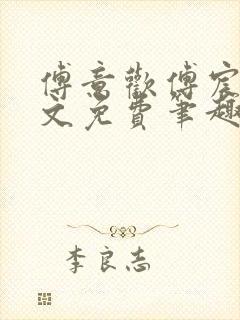 傅意歡傅宸
文免費筆趣
李良志